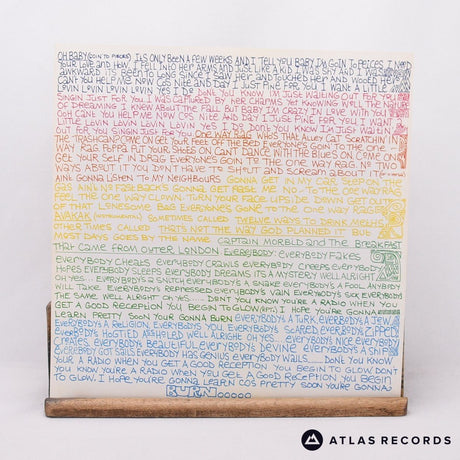 OH BABY (GOIN TO PIECES) ITS ONLY BEEN A FEW WEEKS AND I TELL YOU BABY I'M GOIN TO PEICES, I NEED
YOUR LOVE AND HOW, I FELL INTO HER ARMS AND JUST LIKE A KID I WAS SHY AND I WAS
AWKWARD ITS BEEN TO LONG SINCE I SAW HER AND TOUCHED HER AND WOOED HER
CAN'T YOU HELP ME NOW COS NITE AND DAY I JUST PINE FOR YOU, I WANT A LITTLE
LOVIN LOVIN LOVIN LOVIN YES I DO. DON'T YOU KNOW I'M JUST WAITING OUT FOR YOU
SINGIN JUST FOR YOU I WAS CAPTURED BY HER CHARMS YET KNOWING WELL THE NATURE
OF DREAMING I KNEW ABOUT THE FALL BUT BABY I'M CRAZY IN LOVE WITH YOU
OOH CAN'T YOU HELP ME NOW COS NITE AND DAY I JUST PINE FOR YOU I WANT A
LITTLE LOVIN LOVIN LOVIN LOVIN YES I DO DON'T YOU KNOW I'M JUST WAITIN
OUT FOR YOU SINGIN JUST FOR YOU. ONE WAY RAG WHO'S THAT ALLEY CAT SCRATCHIN IN
THE TRASHCAN COME ON GET YOUR FEET OFF THE BED EVERYONE'S GOIN TO THE ONE
WAY RAG POPPA PUT YOUR SHOES ON CAN'T DANCE WITH THE BLUES ON COME ON
GET YOUR SELF IN DRAG EVERYONE'S GOIN TO THE ONE WAY RAG NO TWO
WAYS ABOUT IT YOU DON'T HAVE TO SHOUT AND SCREAM ABOUT IT
AINT GONNA LISTEN TO MY NEIGHBOURS. GONNA GET IN MY CAR, STEP ON THE
GAS AINT NO FASTBACKS GONNA GET PAST ME NO-TO THE ONE WAY RAG
FEEL THE ONE WAY CLOWN. TURN YOUR FACE UPSIDE DOWN GET OUTTA
OF THAT LONESOME BAG EVERYONES GOING TO THE ONE WAY RAG
AVAKAK (INSTRUMENTAL) SOMETIMES CALLED TWELVE WAYS TO DRINK MECHTS
OTHER TIMES CALLED THATS NOT THE WAY GOD PLANNED IT BUT
MOST DAYS GOES BY THIS NAME. CAPTAIN MORBID AND THE BREAKFAST
THAT CAME FROM OUTER LONDON EVERYBODY. EVERYBODY FAKES
EVERYBODY CHEATS EVERYBODY CRAWLS EVERYBODY CREEPS EVERYBODY
HOPES EVERYBODY SLEEPS EVERYBODY DREAMS ITS A MYSTERY WELL ALRIGHT
OH YES... EVERYBODY'S A SNITCH EVERYBODY'S A SNAKE EVERYBODY'S A FOOL, ANYBODY
WILL TAKE EVERYBODY'S REPRESSED EVERYBODY'S VAIN EVERYBODY'S SICK EVERYBODY
THE SAME WELL ALRIGHT OH YES..... DON'T YOU KNOW YOU'RE A RADIO WHEN YOU
GET A GOOD RECEPTION YOU BEGIN TO GLOW. I HOPE YOU'RE GONNA
LEARN PRETTY SOON YOUR GONNA BURN EVERYBODY'S A TURK EVERYBODY'S A JEW
EVERYBODY'S A RELIGION, EVERYBODY'S YOU, EVERYBODY'S SCARED EVERYBODY'S ZIPPED
EVERYBODY'S HOSTILE ASSHOLED WELL ALRIGHT OH YES... EVERYBODY'S NICE EVERYBODY
CREATES EVERYBODY'S BEAUTIFUL EVERYBODY'S DEVINE EVERYBODY'S A SHIP
EVERYBODY GOT SAILS EVERYBODY HAS GENIUS EVERYBODY WAILS..... DON'T YOU KNOW
YOUR A RADIO WHEN YOU GET A GOOD RECEPTION YOU BEGIN TO GLOW. DON'T
YOU KNOW YOU'RE A RADIO WHEN YOU GET A GOOD RECEPTION YOU BEGIN
TO GLOW. I HOPE YOU'RE GONNA LEARN COS PRETTY SOON YOU'RE GONNA.
BURN.....
ATLAS RECORDS